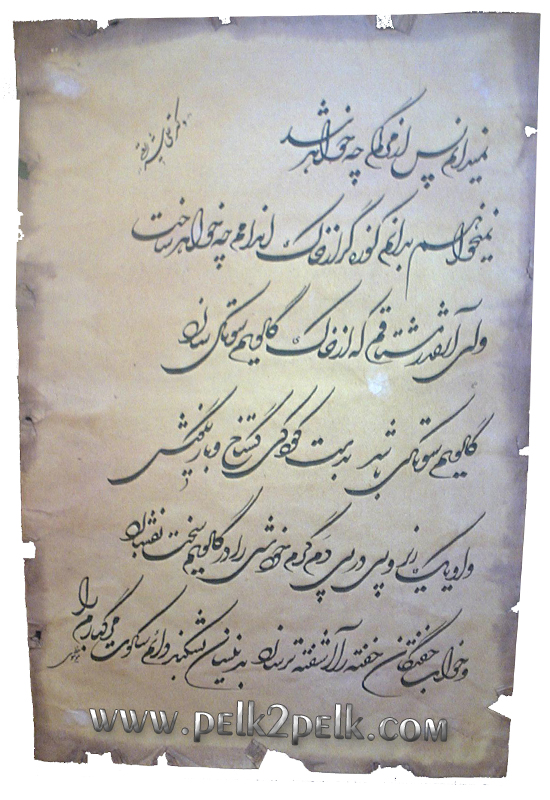 دکتر علی شریعتی
نمیدانم پس از مرگم چه خواهد شد
نمیخواهم بدانم کوزه گر از خاک اندامم چه خواهد ساخت
ولی آنقدر مشتاقم که از خاک گلویم سوتکی سازد
گلویم سوتکی باشد بدست کودکی گستاخ و بازیگوش
و او یکریز و پی در پی دم گرم خودش را در گلویم سخت بفشارد
و خواب خفتگان خفته را آشفته تر سازد بدینسان بشکند دائم سکوت مرگبارم را
www.pelk2pelk.com